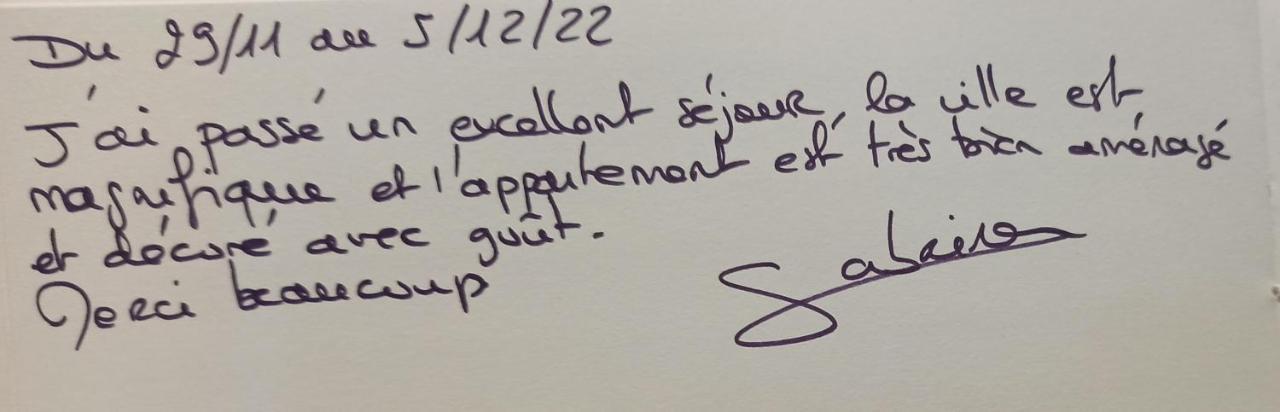 Du 29/11 au 5/12/22
J'ai passé un excellent séjour, la ville est
magnifique et l'appartement est très bien aménagé
et décoré avec goût.
Merci beaucoup